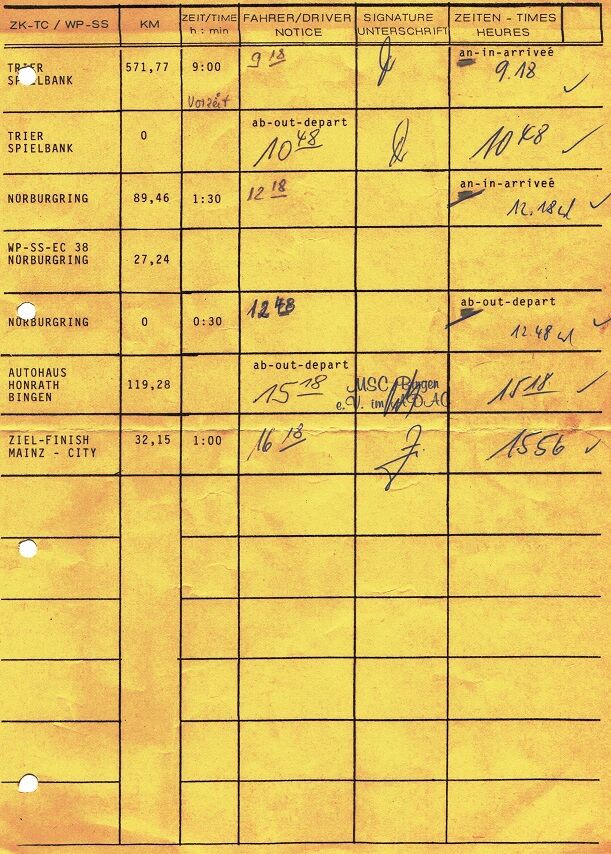 ZK-TC / WP-SS KM ZEIT/TIME FAHRER/DRIVER SIGNATURE ZEITEN - TIMES
h : min NOTICE UNTERSCHRIFT HEURES
an-in-arriveé
TRIER 571,77 9:00 9 18 9.18
SPIELBANK
Vorzeit
ab-out-depart
TRIER 0 10 48 10 48
SPIELBANK
an-in-arriveé
NÜRBURGRING 89,46 1:30 12 18 12.18
WP-SS-EC 38
NÜRBURGRING 27,24
ab-out-depart
NÜRBURGRING 0 0:30 12 48 12.48
ab-out-depart
AUTOHAUS
HONRATH 119,28 15 18 MSC Bingen 15 18
BINGEN e.V. im ADAC
ZIEL-FINISH 32,15 1:00 16 18 1556
MAINZ - CITY